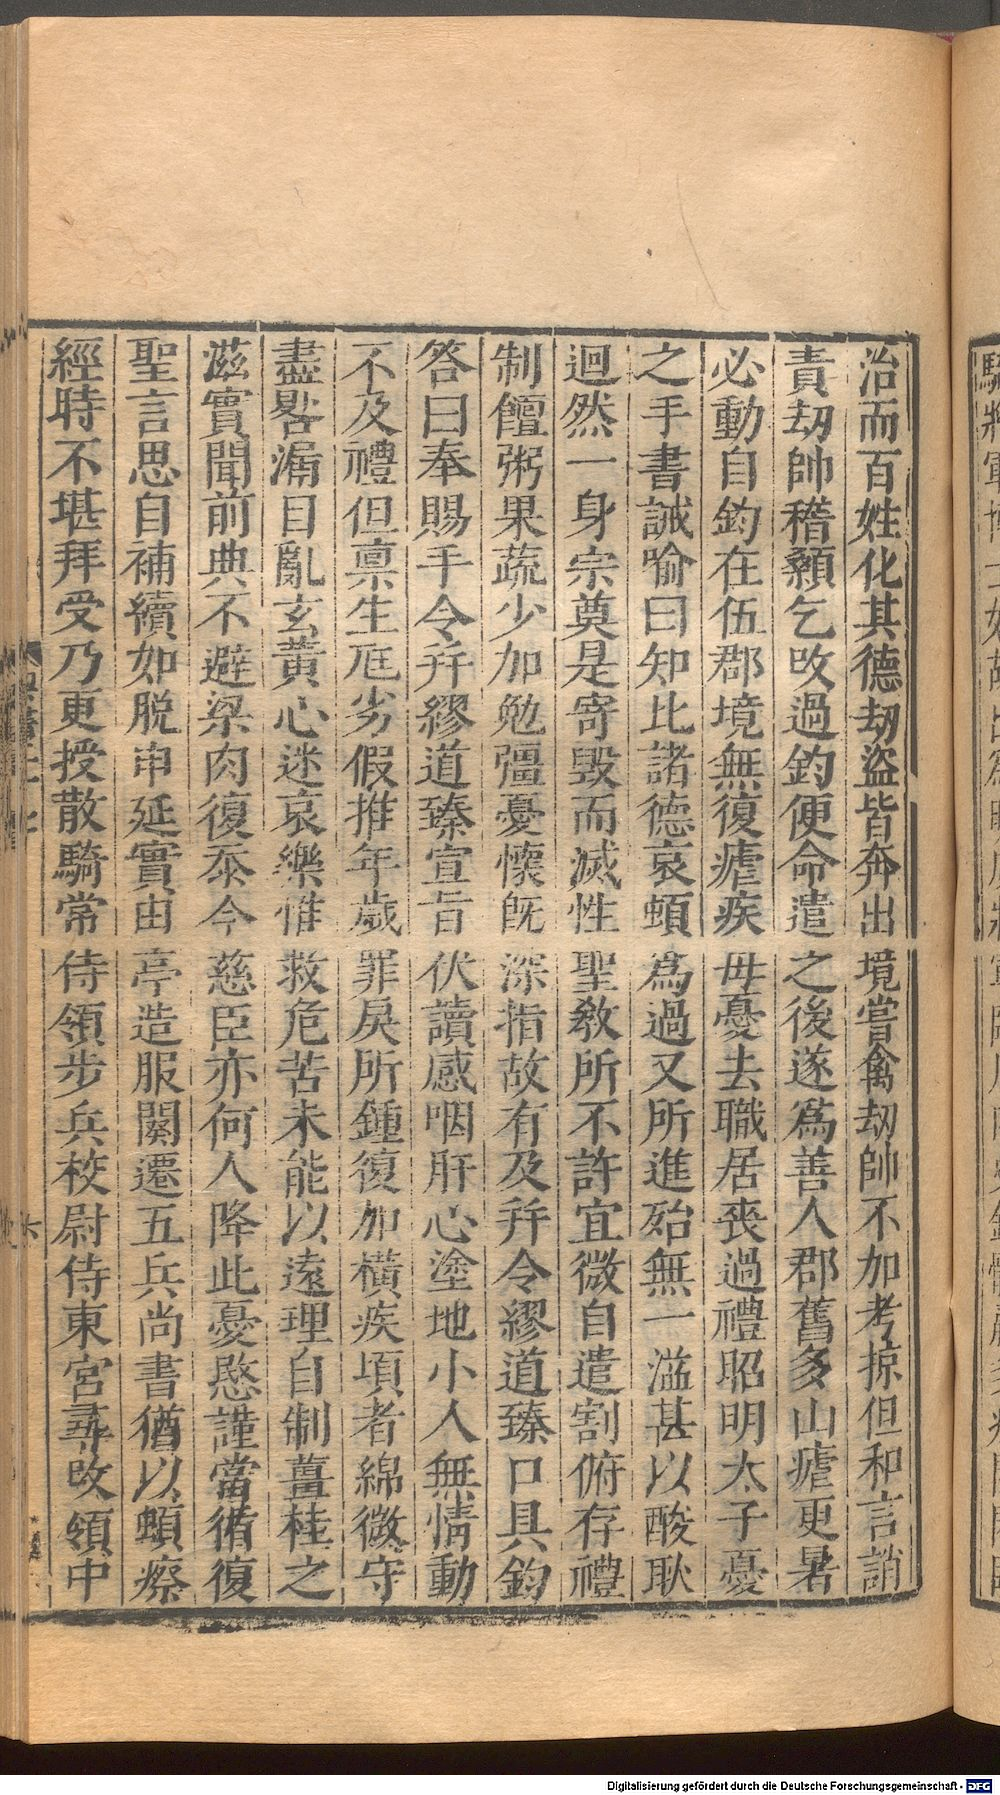 治而百姓化其德劫盜皆奔出境嘗禽劫帥不加考掠但和言誚
責劫帥稽顙乞改過鈞便命遣之後遂爲善人郡舊多山瘧更暑
必動自鈞在伍郡境無復瘧疾毋憂去職居喪過禮昭明太子憂
之手書誡喻曰知比諸德哀頓爲過又所進殆無一溢甚以酸耿
迥然一身宗奠是寄毀而滅性聖敎所不許宜微自遣割俯存禮
制饘粥果蔬少加勉彊憂懷旣深指故有及幷令繆道臻口具鈞
答曰奉賜手令幷繆道臻宣旨伏讀感咽肝心塗地小人無情動
不及禮但稟生尫劣假推年歲罪戾所鍾復加橫疾頃者綿微守
盡晷漏目亂玄黃心迷哀樂惟救危苦未能以遠理自制薑桂之
滋實聞前典不避粱肉復忝今慈臣亦何人降此憂愍謹當循復
聖言思自補續如脫申延實由亭造服闋遷五兵尚書猶以頓瘵
經時不堪拜受乃更授散騎常侍領步兵校尉侍東宮尋改領中
Digitalisierung gefördert durch die Deutsche Forschungsgemeinschaft - DFG